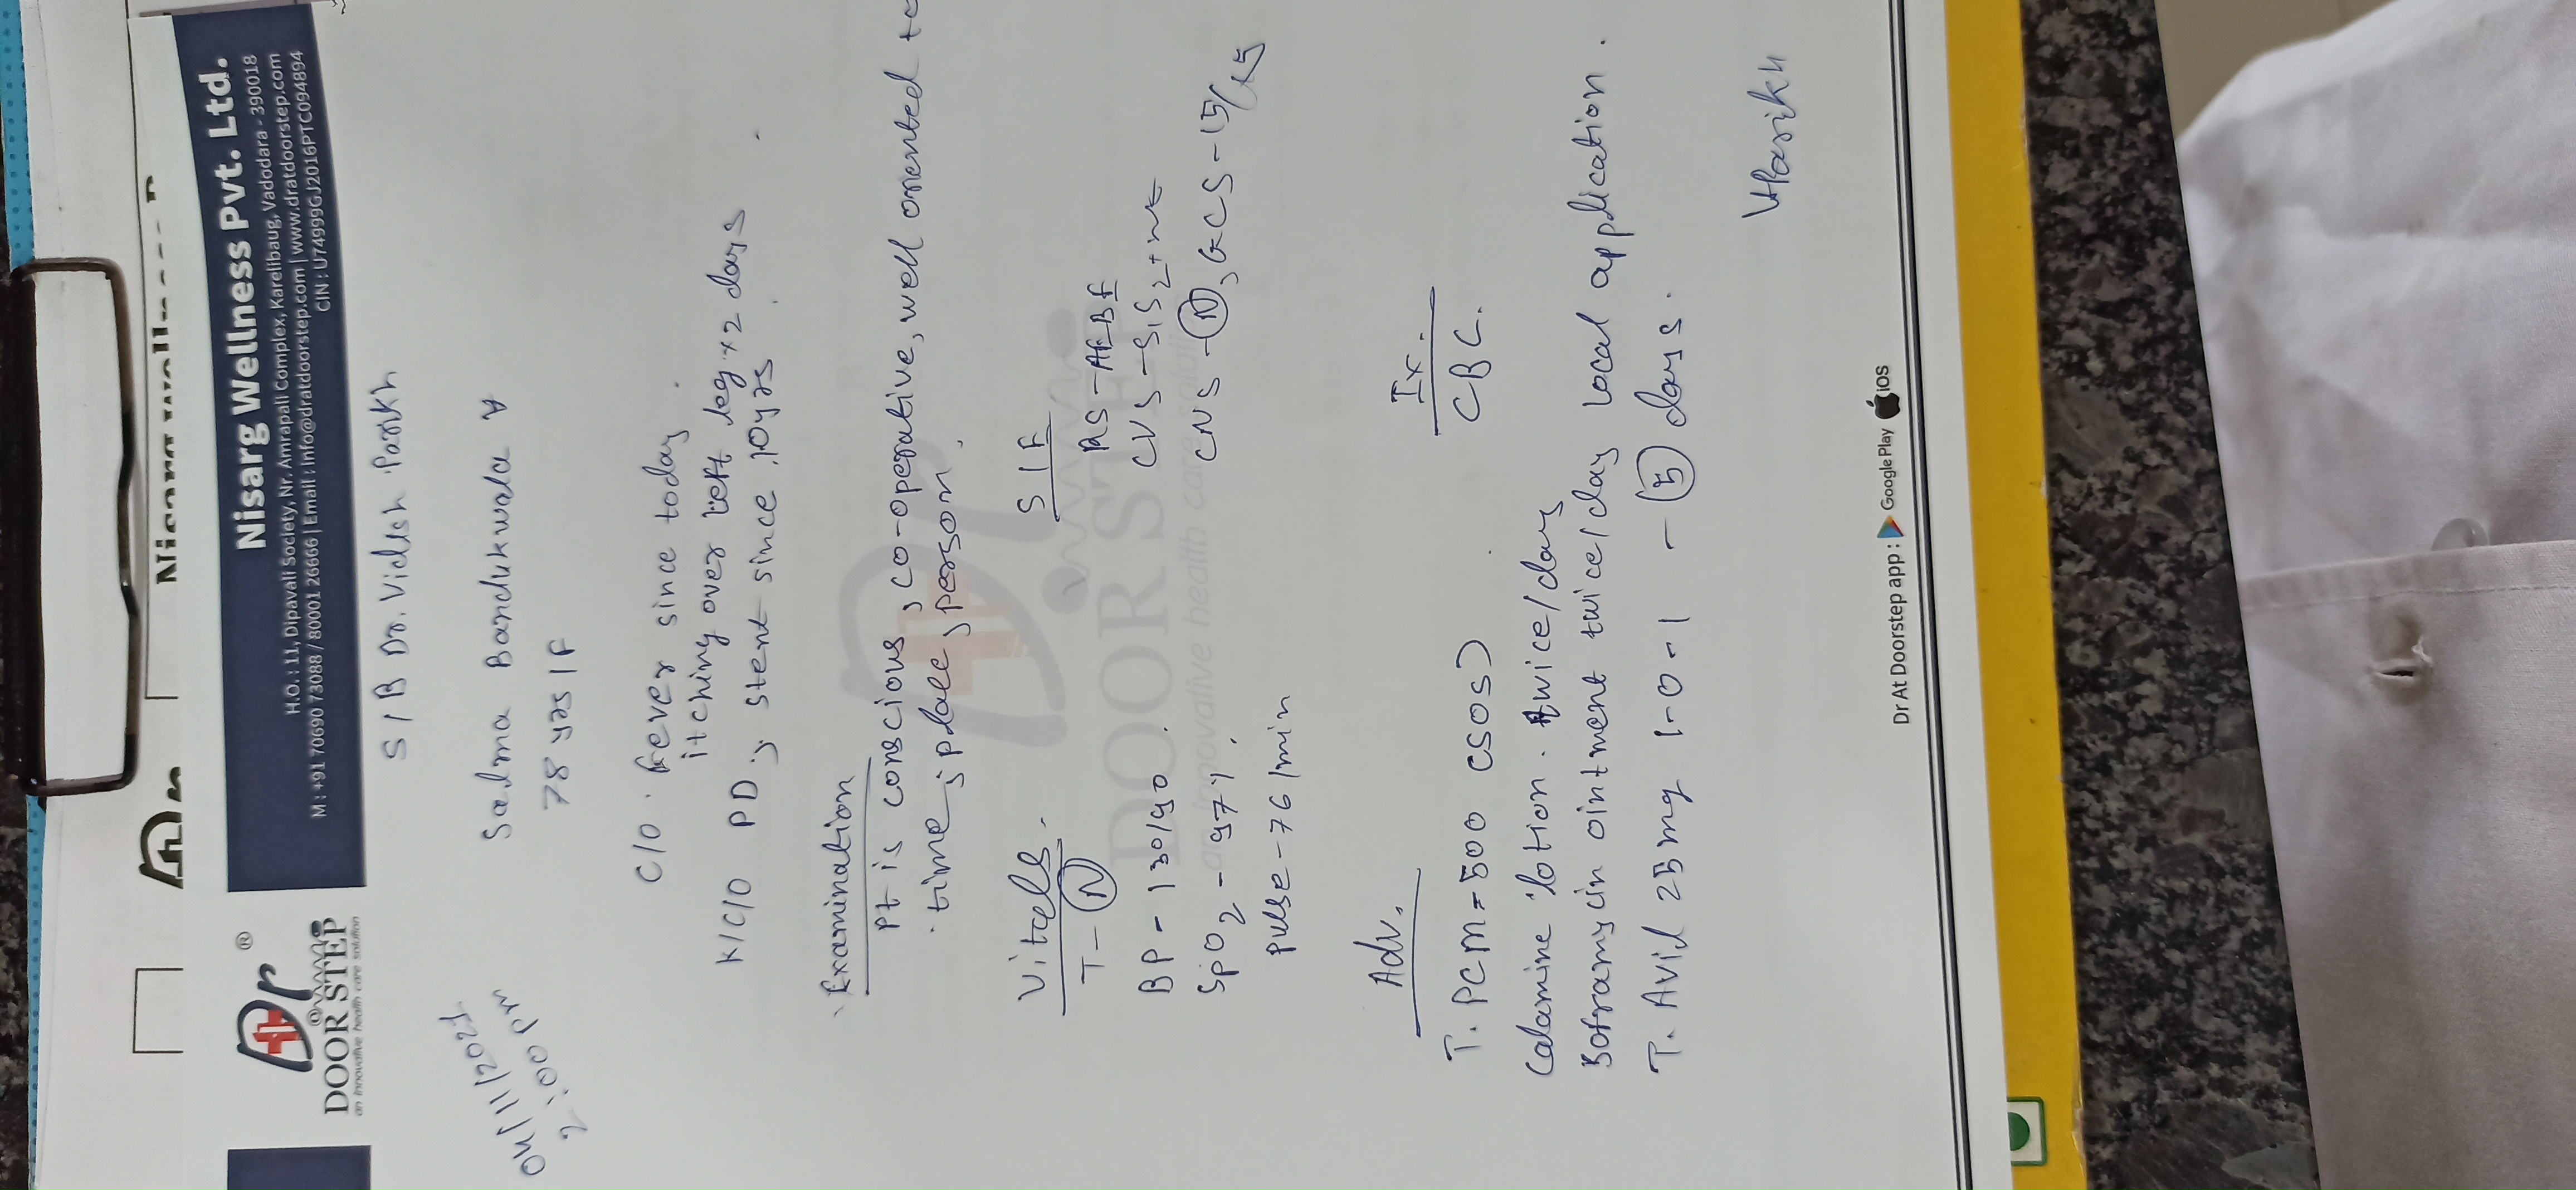 Nisarg Wellness Pvt. Ltd.
H.O. : 11, Dipavali Society, Nr. Amrapali Complex, Karelibaug, Vadodara - 390018
M : +91 70690 73088 / 80001 26666 | Email : info@dratdoorstep.com | www.dratdoorstep.com
CIN : U74999GJ2016PTC094894
Dr ®
DOOR STEP
an innovative health care solution
S/B Dr. Parikh
04/11/2021
2:00 pm
Salma Bandukwala
78 yrs / F
C/O. Fever since today.
itching over left leg x 2 days
K/C/O PD, stent since 10 yrs
Examination
Pt is conscious, co-operative, well oriented to
time, place, person.
Vitals
T - N
BP - 130/90
SpO2 - 97%
pulse - 76 /min
S/E
RS - AEBE
CVS - S1S2
CNS - N, GCS - 15/15
Adv.
T. PCM - 500 (SOS)
Calamine lotion. twice/day
Soframycin ointment twice/day local application.
T. Avil 25mg 1-0-1 - 5 days.
Ix.
CBC.
Parikh
Dr At Doorstep app : Google Play iOS